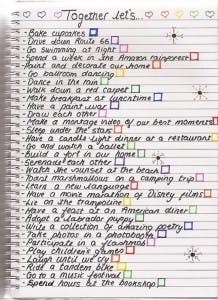 Together let's...
- Bake cupcakes
- Drive down Route 66
- Go swimming at night
- Spend a week in the Amazon rainforest
- Paint and decorate our home
- Go ballroom dancing
- Dance in the rain
- Walk down a red carpet
- Make breakfast at lunchtime
- Have a paint war
- Draw each other
- Make a montage index of our best moments
- Sleep under the stars
- Have a candle light dinner at a restaurant
- Go and watch a ballet
- Build a fort in our home
- Serenade each other
- Watch the sunset at the beach
- Roast marshmallows on a camping trip
- Learn a new language
- Have a movie marathon of Disney films
- Lie on the trampoline
- Have a feast at an American diner
- Adopt a labrador puppy
- Write a collection of amazing poetry
- Take photos in a photobooth
- Participate in a flashmob
- Play children's games
- Laugh until we cry
- Ride a tandem bike
- Go to a music festival
- Spend hours at the bookshop